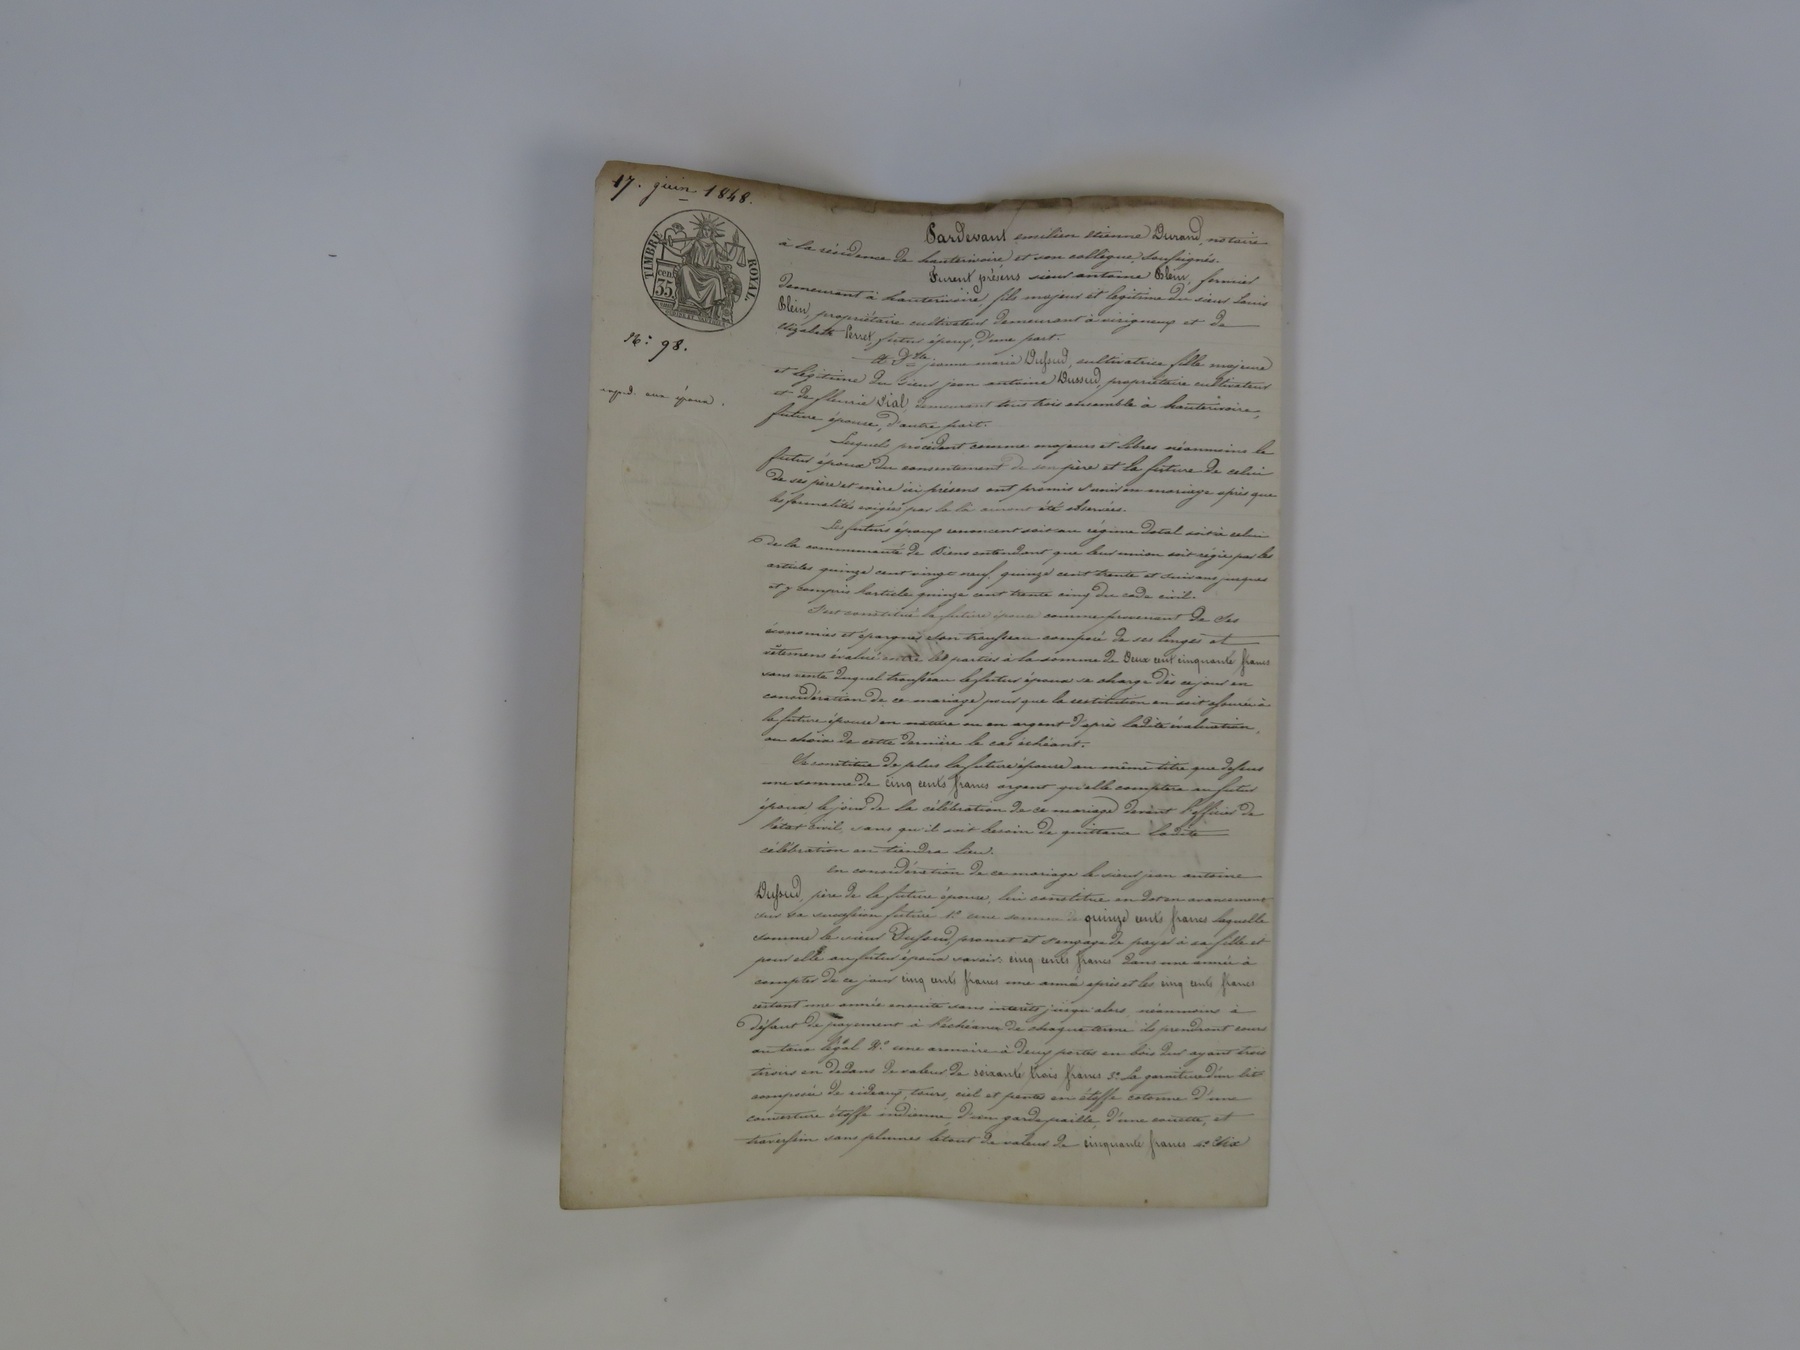 17. juin 1848.
TIMBRE ROYAL.
35 cent
N.o 98.
exp.d. aux époux.
Pardevant emilien etienne Durand, notaire
à la résidence de hauterivoire et son collègue soussignés.
Furent présens sieur antoine Blein, fermier
demeurant à hauterivoire, fils majeur et légitime du sieur Louis
Blein, propriétaire cultivateur demeurant à virigneux et de
Elizabeth Perret, futur époux, d'une part.
Et D.lle jeanne marie Dussud, cultivatrice fille majeure
et légitime du sieur jean antoine Dussud, propriétaire cultivateur
et de fleurie Vial, demeurant tous trois ensemble à hauterivoire,
future épouse, d'autre part.
Lesquels procédant comme majeurs et libres néanmoins le
futur époux du consentement de son père et la future de celui
de ses père et mère ici présens ont promis s'unir en mariage après que
les formalités exigées par la loi auront été observées.
Les futurs époux renoncent soit au régime dotal soit à celui
de la communauté de Biens entendant que leur union soit régie par les
articles quinze cent vingt neuf, quinze cent trente et suivans jusques
et y compris l'article quinze cent trente cinq du code civil.
S'est constitué la future épouse comme provenant de ses
économies et épargnes son trousseau composé de ses linges et
vêtemens évalué entre les parties à la somme de Deux cent cinquante francs
sans vente duquel trousseau le futur époux se charge dès ce jour en
considération de ce mariage pour que la restitution en soit assurée à
la future épouse en nature ou en argent d'après ladite évaluation,
au choix de cette dernière le cas échéant.
Se constitue de plus la future épouse au même titre que dessus
une somme de cinq cents francs argent qu'elle comptera au futur
époux le jour de la célébration de ce mariage devant l'officier de
l'état civil, sans qu'il soit besoin de quittance ladite
célébration en tiendra lieu.
En considération de ce mariage le sieur jean antoine
Dussud, père de la future épouse, lui constitue en dot en avancement
sur sa succession future 1.o une somme de quinze cents francs laquelle
somme le sieur Dussud promet et s'engage de payer à sa fille et
pour elle au futur époux savoir: cinq cents francs dans une année à
compter de ce jour cinq cents francs une année après et les cinq cents francs
restant une année ensuite sans intérêts jusqu'alors, néanmoins à
défaut de payement à l'échéance de chaque terme ils prendront cours
au taux légal 2.o une armoire à deux portes en bois dur ayant trois
tiroirs en dedans de valeur de soixante trois francs 3.o la garniture d'un lit
composée de rideaux, tours, ciel et pentes en étoffe cotonne d'une
couverture étoffe indienne, d'un garde paille, d'une couette, et
traversin sans plumes le tout de valeur de cinquante francs 4.o Dix